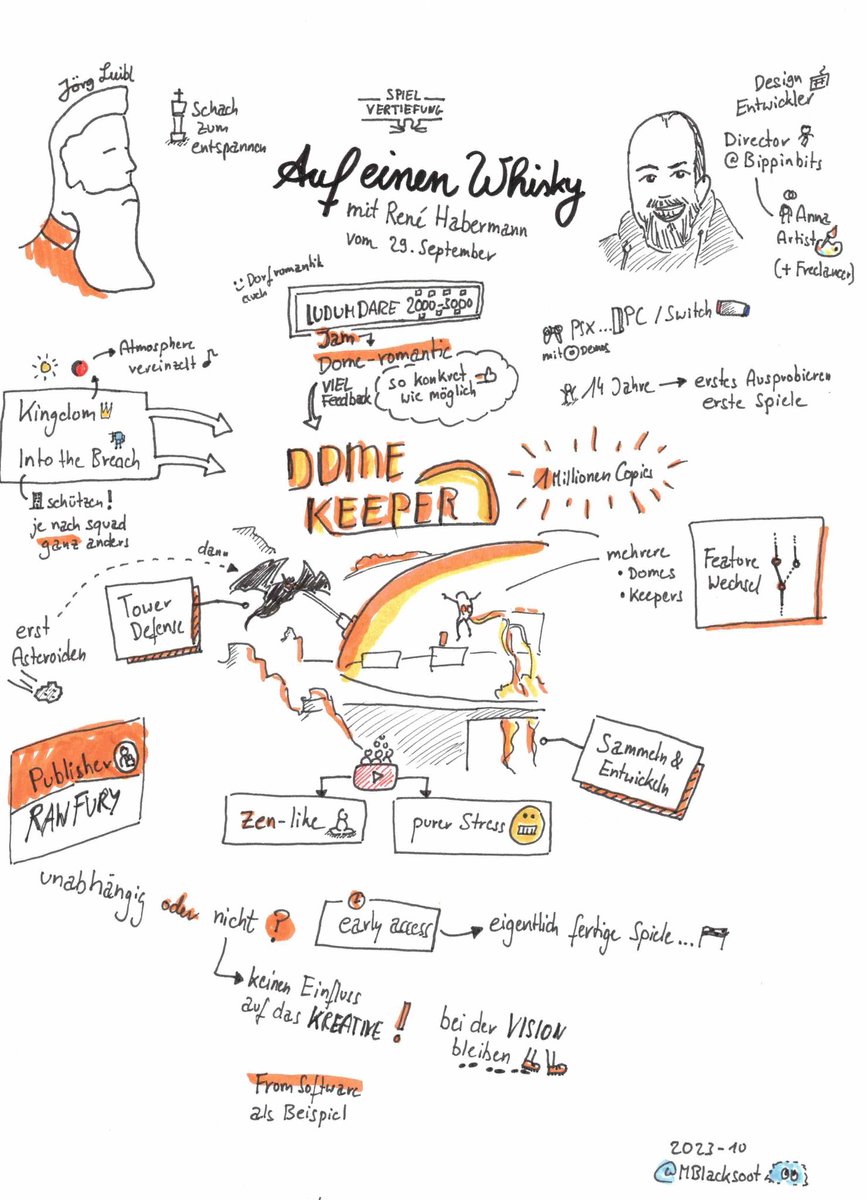 Jörg Luibl
Schach
zum
entspannen
SPIEL
VERTIEFUNG
Auf einen Whisky
mit René Habermann
vom 29. September
Design
Entwickler
Director
@ Bippinbits
Anna
Artist
(+ Freelancer)
Dorfromantik
auch
LUDUM DARE 2000-3000
Jam
Dome-romantic
VIEL
Feedback
so konkret
wie möglich
PSX... PC / Switch
mit Demos
14 Jahre → erstes Ausprobieren
erste Spiele
Atmosphere
vereinzelt
Kingdom
Into the Breach
schützen!
je nach squad
ganz anders
DOME
KEEPER
1 Millionen Copies
dann
erst
Asteroiden
Tower
Defense
mehrere
• Domes
• Keepers
Feature
Wechsel
Publisher
RAW FURY
Sammeln &
Entwickeln
Zen-like
purer Stress
unabhängig oder nicht ?
early access
eigentlich fertige Spiele...
keinen Einfluss
auf das KREATIVE !
bei der VISION
bleiben
From Software
als Beispiel
2023-10
@MBlacksoot